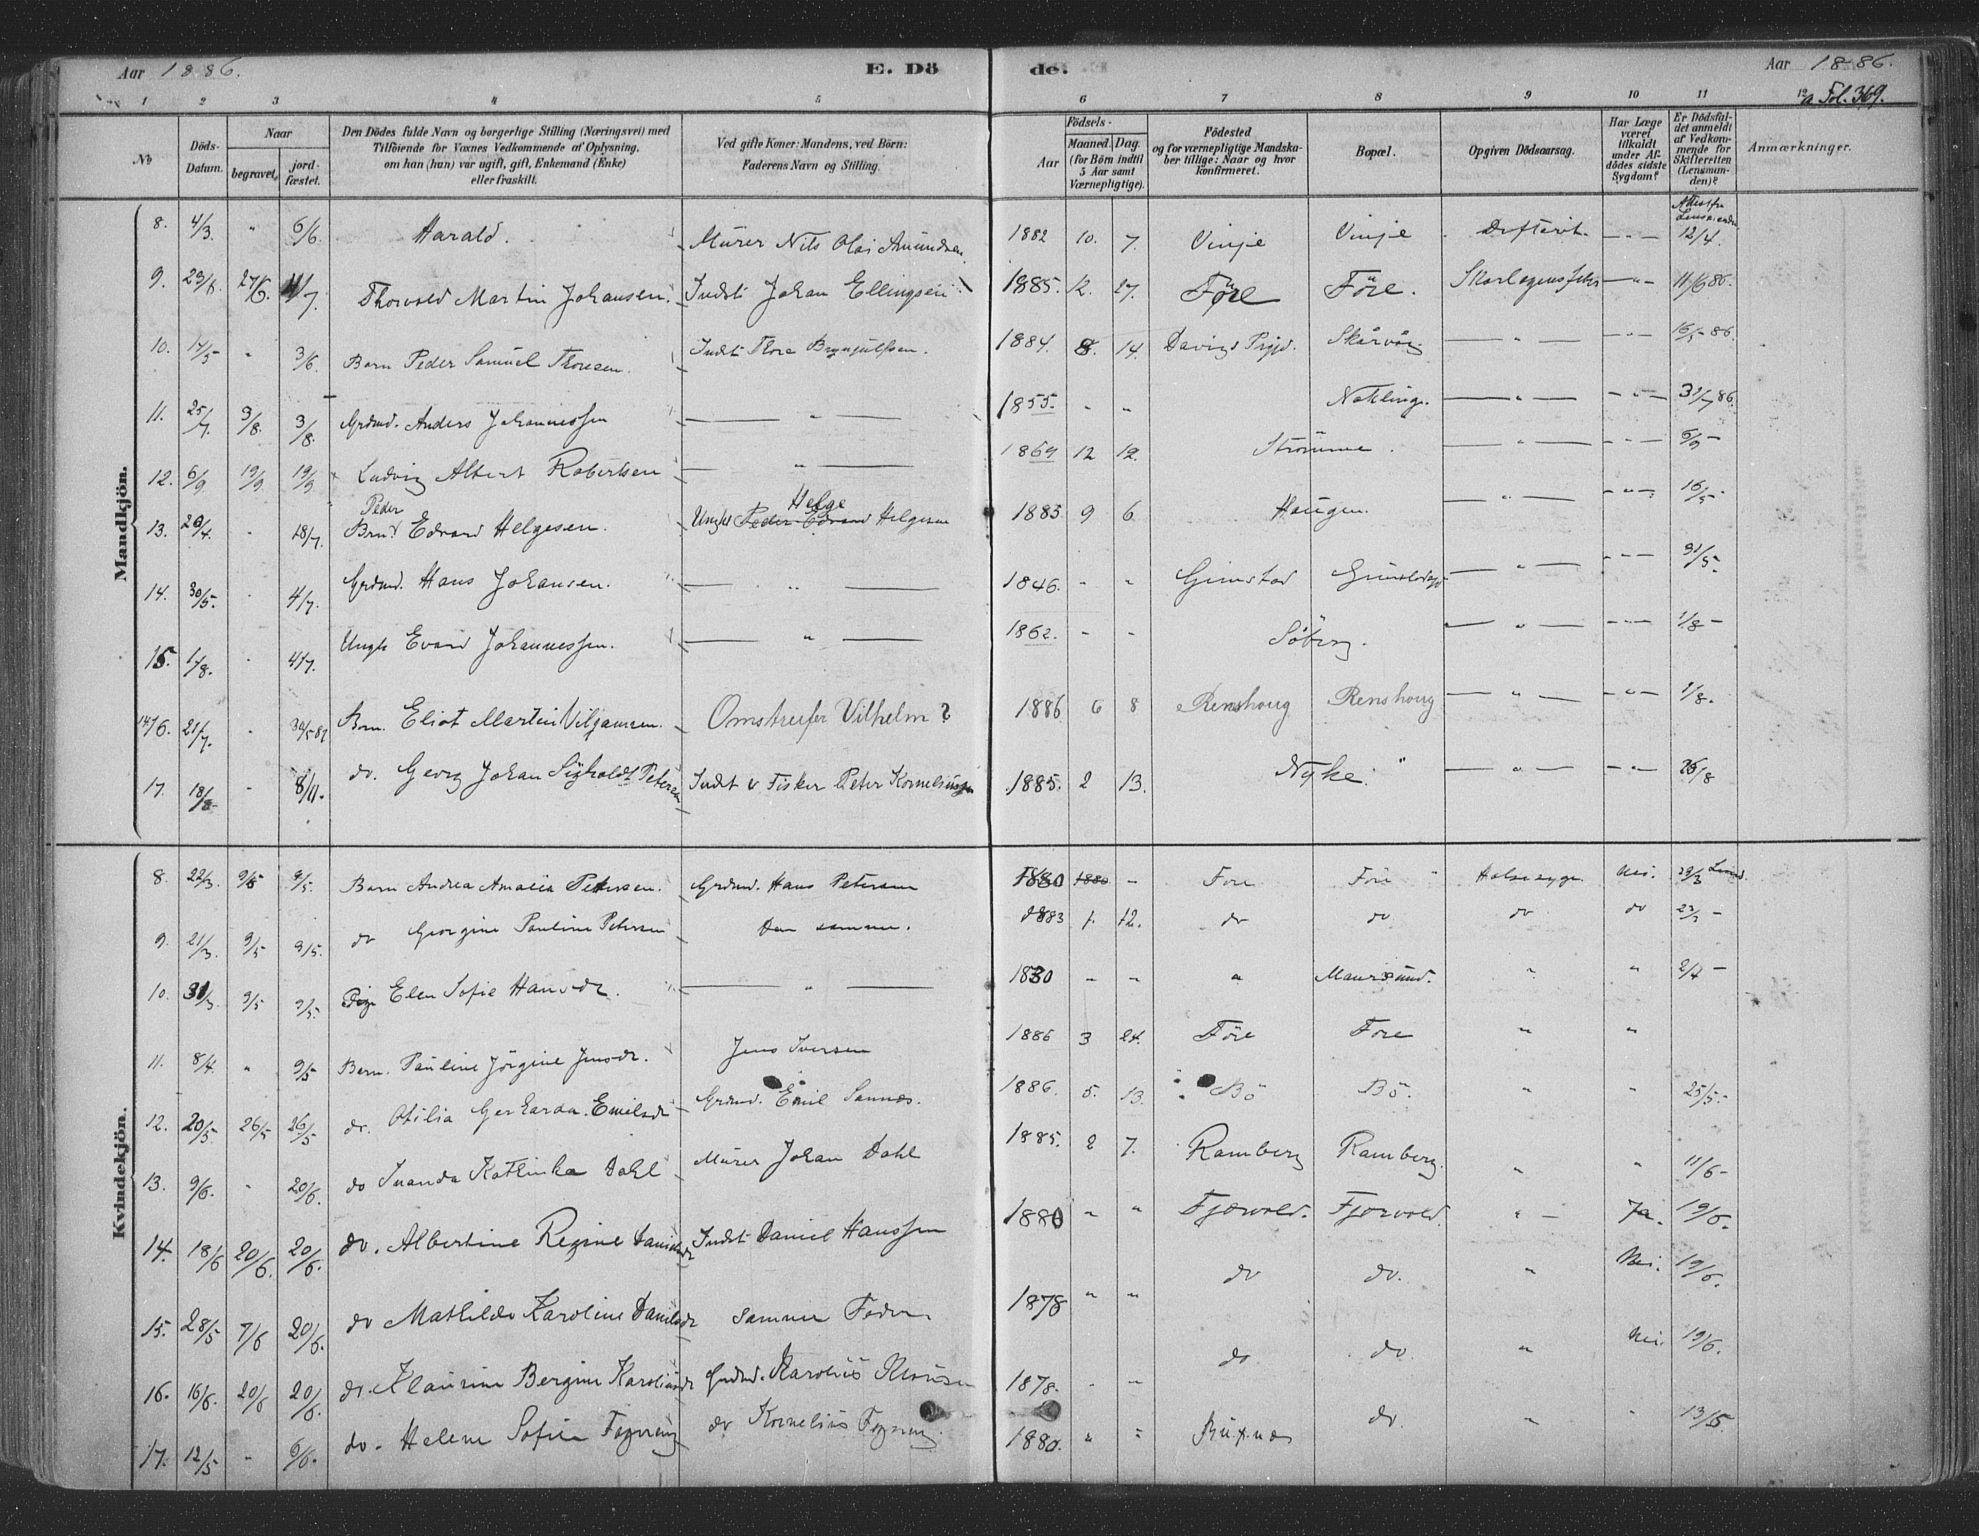 Aar 1886. E. Döde. Aar 1886.
1 2 3 4 5 6 7 8 9 10 11 12 Fol. 369.
No
Döds-Datum.
Naar
begravet,
jordfæstet.
Den Dödes fulde Navn og borgerlige Stilling (Næringsvei) med Tilföiende for Voxnes Vedkommende af Oplysning, om han (hun) var ugift, gift, Enkemand (Enke) eller fraskilt.
Ved gifte Koner: Mandens, ved Börn: Faderens Navn og Stilling.
Födsels-
Aar
Maaned. Dag
(for Börn indtil 5 Aar samt Værnepligtige).
Födested og for værnepligtige Mandskaber tillige: Naar og hvor konfirmeret.
Bopæl.
Opgiven Dödsaarsag.
Har Læge været tilkaldt under Afdödes sidste Sygdom?
Er Dödsfaldet anmeldt af Vedkommende for Skifteretten (Lensmanden)?
Anmærkninger.
Mandkjön.
8. 4/3. " 6/6. Harald. Murer Nils Olai Amundsen 1882 10. 7. Vinje Vinje Difterit. — " — 12/4.
9. 23/6. 27/6. 11/7. Thorvald Martin Johansen. Indst. Johan Ellingsen 1885. 12. 27. Före Före. Skarlagensfeber — " — 11/6 86.
10. 14/5 " 3/6. Barn Peder Samuel Thoresen. Indst. Thore Brynjulfsen. 1884. 8. 14. Davigs Prgd. Skårvåg — " — — " — 16/5 86.
11. 25/7. 3/8. 3/8. Grdmd. Anders Johannessen — " — 1855. " " Nakling. — " — — " — 31/7 86.
12. 6/9. 19/9 19/9 Ludvig Albert Robertsen — " — 1869 12 12. Strömme. — " — — " — 6/9 —
Peder Helge
13. 20/4. " 18/7. Brn. Edvard Helgesen. Ungkl. Peder Edvard Helgesen 1883 9 6 Haugen. — " — — " — 16/5
14. 30/5. " 4/7. Grdmd. Hans Johansen. — " — 1846. " " Gimstad — " — — " — 31/5.
15. 1/8. " 4/7. Ungk Evard Johannessen. — " — 1862. " " Söberg. — " — — " — 1/8 —
16. 21/7. " 30/5 87 Barn. Eliot Martin Viljamsen. Omstreifer Vilhelm ? 1886 6 8 Renshoug Renshoug — " — — " — 1/8.
17. 18/8. " 8/11. do. Georg Johan Sigholdt Petersen Indst & Fisker Peter Korneliussen 1885. 2 13. Nyke. — " — — " — 25/8
Kvindekjön.
8. 22/3. 9/5 9/5. Barn Andrea Amalia Petersen. Grdmd. Hans Petersen 1880 1880 — Fore Fore Halsesyge Nei. 29/3
9. 21/3. 9/5 9/5. do Georgine Pauline Petersen Den samme. 1883 1. 12. do do do do
10. 31/3 9/5 9/5. Pige Elen Sofie Hansdr. — " — 1830 " " " Maursund. " " 2/4 —
11. 8/4. " 9/5 Barn. Pauline Jörgine Jensdr. Jens Iversen 1886 3 24. Före Fore " "
12. 20/5. 26/5 26/5 do. Otilia Gerharda Emilsdr Grdmd. Emil Sannes. 1886. 5. 13. Bö Bö. " " 25/5.
13. 9/6. " 20/6. do Ivanda Kathinka Dahl Murer Johan Dahl 1885. 2 7. Ramberg Ramberg. " " 11/6 —
14. 18/6 20/6. 20/6. do. Albertine Regine Danielsdr Indst. Daniel Hanssen 1880 " " Fjærvold. Fjærvold. " — Ja. 19/6.
15. 28/5 7/6 20/6. do Mathilde Karoline Danielsdr samme Fader 1878 " " do do. " Nei. 19/6.
16. 16/6. 20/6 20/6. do. Klaurine Bergine Karoliusdr Grdmd. Karolius 1878. " " do do. " Nei 19/6.
17. 12/5 " 6/6. do. Helene Sofie do Kornelius 1880. " " Buxnæs do. " " 13/5